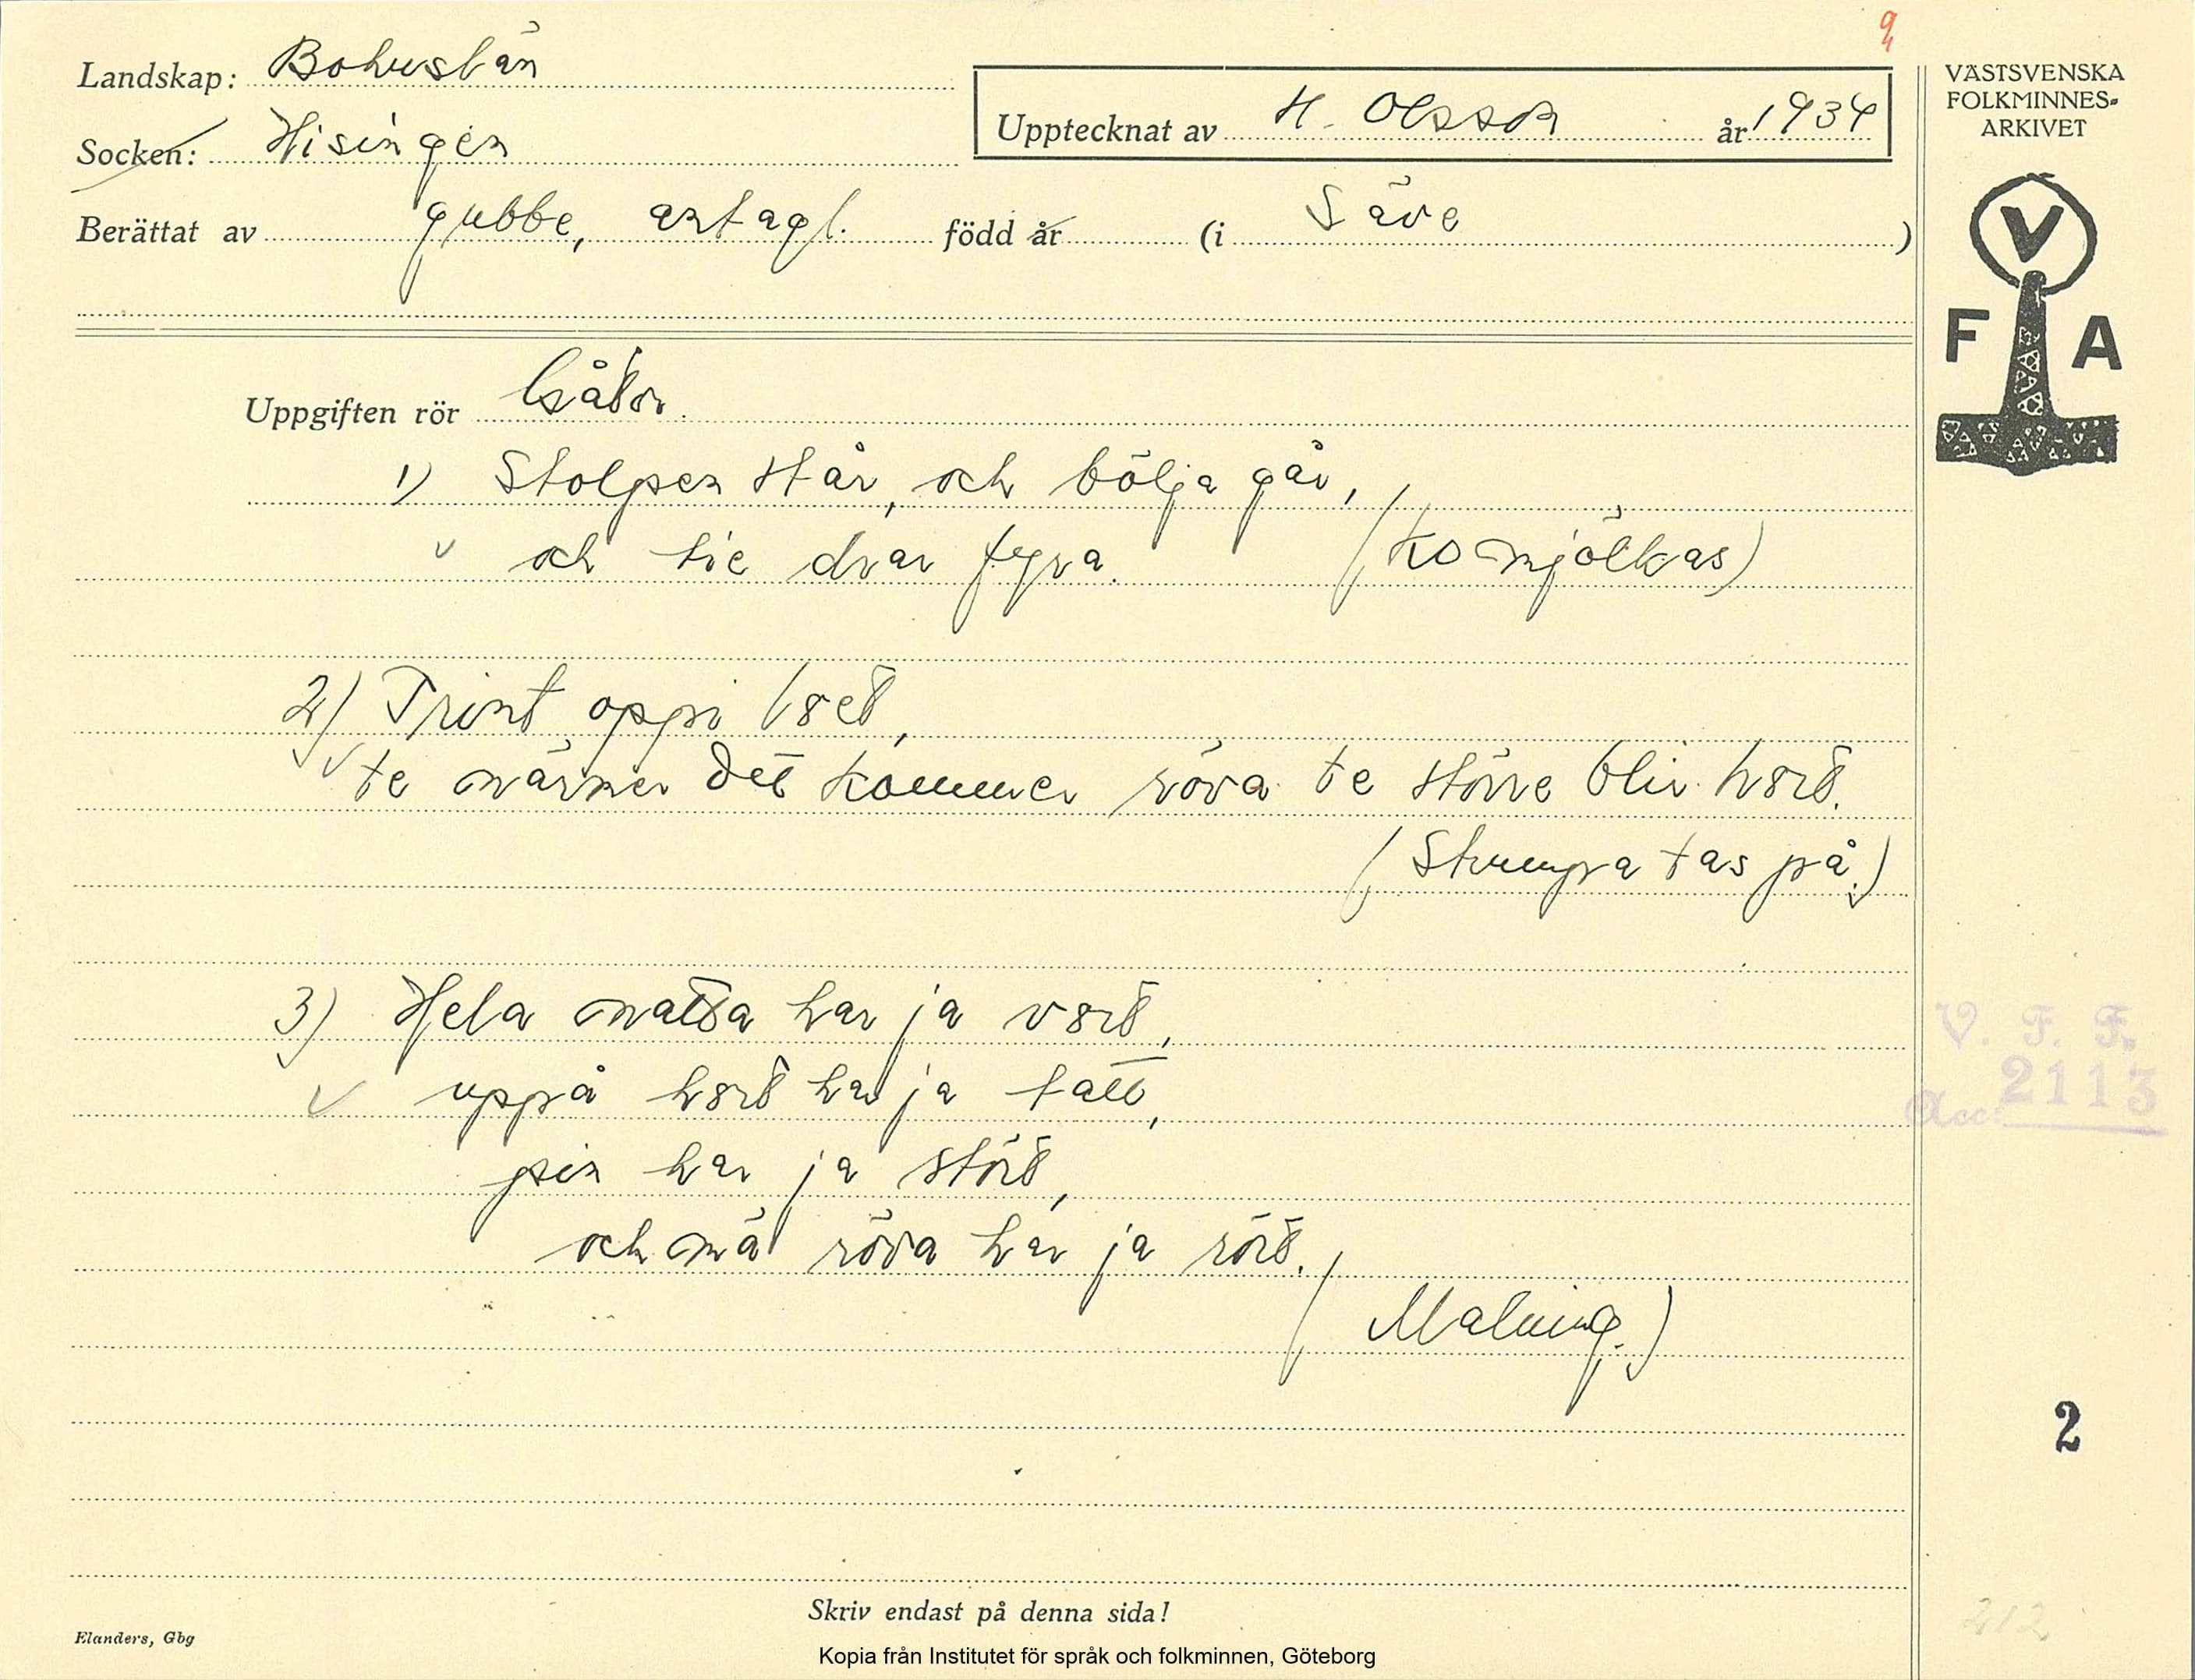 9/4
Landskap: Bohuslän
Socken: Hisingen
Upptecknat av H. Olsson år 1934
VÄSTSVENSKA
FOLKMINNES-
ARKIVET
Berättat av gubbe, antagl. född år (i Säve )
V
F A
Uppgiften rör Gåtor.
1) Stolpen står, och bölja går,
och tie drar fyra. (Ko mjölkas)
2) Trint oppi
te närmer det kommer röva te större blir
(Strumpa tas på.)
3) Hela natta har ja
uppå har ja
pin har ja
och mä röva har ja
(Malning.)
V. F. F.
Acc: 2113
2
Skriv endast på denna sida!
Elanders, Gbg
212
Kopia från Institutet för språk och folkminnen, Göteborg